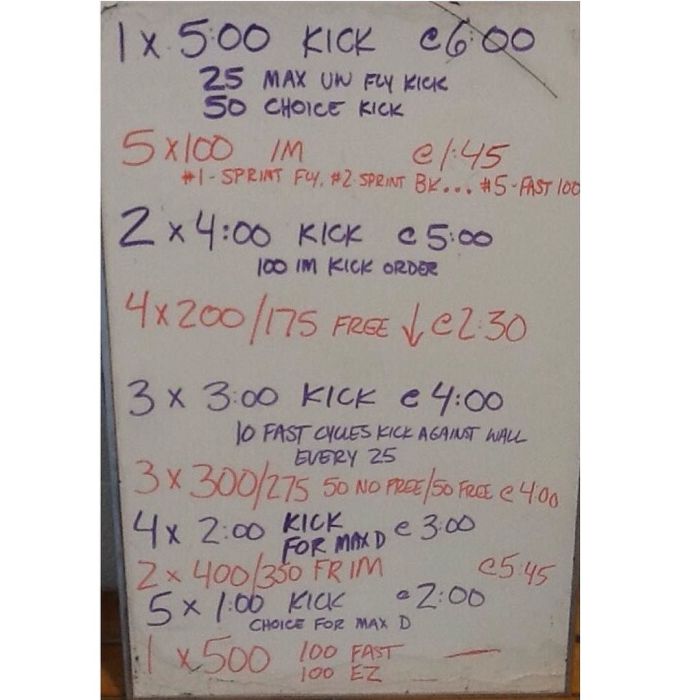 1 x 5:00 KICK @6:00
25 MAX UW FLY KICK
50 CHOICE KICK
5 x 100 IM @1:45
#1 - SPRINT FLY, #2 SPRINT BK... #5 - FAST 100
2 x 4:00 KICK @5:00
100 IM KICK ORDER
4 x 200/175 FREE ↓ @2:30
3 x 3:00 KICK @4:00
10 FAST CYCLES KICK AGAINST WALL
EVERY 25
3 x 300/275 50 NO FREE/50 FREE @4:00
4 x 2:00 KICK @3:00
FOR MAX D
2 x 400/350 FR IM @5:45
5 x 1:00 KICK @2:00
CHOICE FOR MAX D
1 x 500 100 FAST —
100 EZ